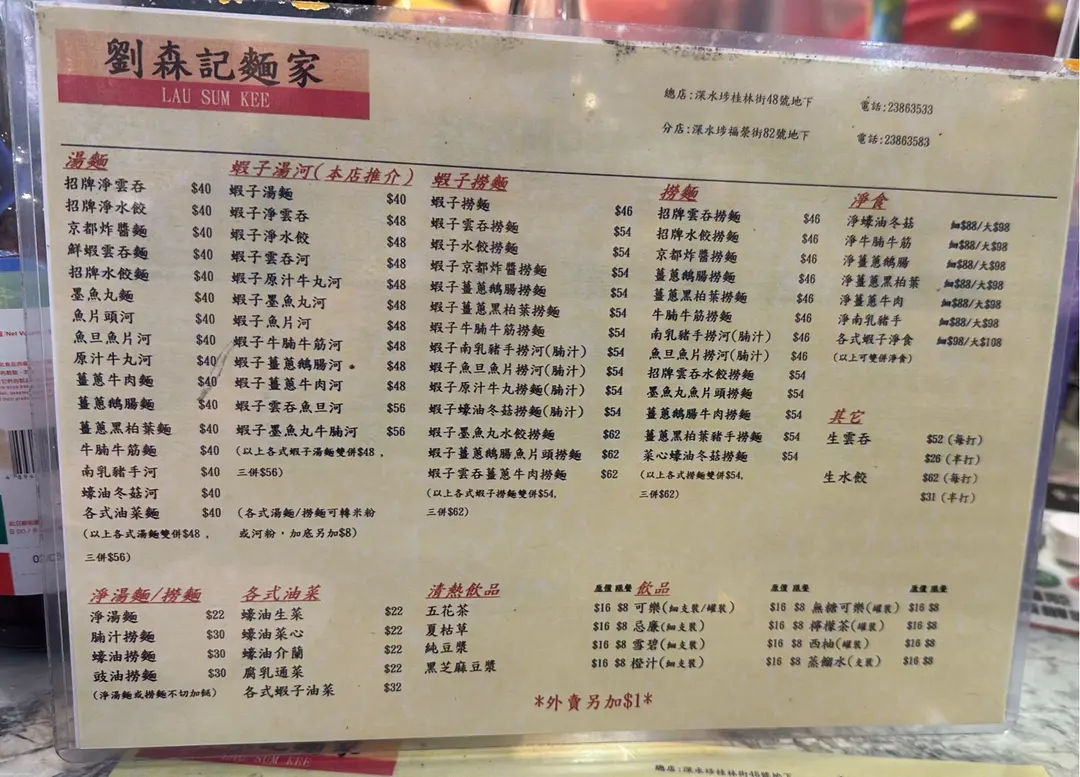 劉森記麵家
LAU SUM KEE
總店:深水埗桂林街48號地下 電話:23863533
分店:深水埗福榮街82號地下 電話:23863583
湯麵
招牌淨雲吞 $40
招牌淨水餃 $40
京都炸醬麵 $40
鮮蝦雲吞麵 $40
招牌水餃麵 $40
墨魚丸麵 $40
魚片頭河 $40
魚旦魚片河 $40
原汁牛丸河 $40
薑蔥牛肉麵 $40
薑蔥鵝腸麵 $40
薑蔥黑柏葉麵 $40
牛腩牛筋麵 $40
南乳豬手河 $40
蠔油冬菇河 $40
各式油菜麵 $40
(以上各式湯麵雙併$48，
三併$56)
蝦子湯河(本店推介)
蝦子湯麵 $40
蝦子淨雲吞 $48
蝦子淨水餃 $48
蝦子雲吞河 $48
蝦子原汁牛丸河 $48
蝦子墨魚丸河 $48
蝦子魚片河 $48
蝦子牛腩牛筋河 $48
蝦子薑蔥鵝腸河 $48
蝦子薑蔥牛肉河 $48
蝦子雲吞魚旦河 $56
蝦子墨魚丸牛腩河 $56
(以上各式蝦子湯麵雙併$48，
三併$56)
(各式湯麵/撈麵可轉米粉
或河粉，加底另加$8)
蝦子撈麵
蝦子撈麵 $46
蝦子雲吞撈麵 $54
蝦子水餃撈麵 $54
蝦子京都炸醬撈麵 $54
蝦子薑蔥鵝腸撈麵 $54
蝦子薑蔥黑柏葉撈麵 $54
蝦子牛腩牛筋撈麵 $54
蝦子南乳豬手撈河(腩汁) $54
蝦子魚旦魚片撈河(腩汁) $54
蝦子原汁牛丸撈麵(腩汁) $54
蝦子蠔油冬菇撈麵(腩汁) $54
蝦子墨魚丸水餃撈麵 $62
蝦子薑蔥鵝腸魚片頭撈麵 $62
蝦子雲吞薑蔥牛肉撈麵 $62
(以上各式蝦子撈麵雙併$54,
三併$62)
撈麵
招牌雲吞撈麵 $46
招牌水餃撈麵 $46
京都炸醬撈麵 $46
薑蔥鵝腸撈麵 $46
薑蔥黑柏葉撈麵 $46
牛腩牛筋撈麵 $46
南乳豬手撈河(腩汁) $46
魚旦魚片撈河(腩汁) $46
招牌雲吞水餃撈麵 $54
墨魚丸魚片頭撈麵 $54
薑蔥鵝腸牛肉撈麵 $54
薑蔥黑柏葉豬手撈麵 $54
菜心蠔油冬菇撈麵 $54
(以上各式撈麵雙併$54,
三併$62)
淨食
淨蠔油冬菇 細$88/大$98
淨牛腩牛筋 細$88/大$98
淨薑蔥鵝腸 細$88/大$98
淨薑蔥黑柏葉 細$88/大$98
淨薑蔥牛肉 細$88/大$98
淨南乳豬手 細$88/大$98
各式蝦子淨食 細$98/大$108
(以上可雙併淨食)
其它
生雲吞 $52 (每打)
$26 (半打)
生水餃 $62 (每打)
$31 (半打)
淨湯麵/撈麵
淨湯麵 $22
腩汁撈麵 $30
蠔油撈麵 $30
豉油撈麵 $30
(淨湯麵或撈麵不切加餸)
各式油菜
蠔油生菜 $22
蠔油菜心 $22
蠔油介蘭 $22
腐乳通菜 $22
各式蝦子油菜 $32
清熱飲品 原價 跟餐
五花茶 $16 $8
夏枯草 $16 $8
純豆漿 $16 $8
黑芝麻豆漿 $16 $8
飲品 原價 跟餐 原價 跟餐
可樂(細支裝/罐裝) $16 $8 無糖可樂(罐裝) $16 $8
忌廉(細支裝) $16 $8 檸檬茶(罐裝) $16 $8
雪碧(細支裝) $16 $8 西柚(罐裝) $16 $8
橙汁(細支裝) $16 $8 蒸餾水(支裝) $16 $8
*外賣另加$1*
LAU SUM KEE